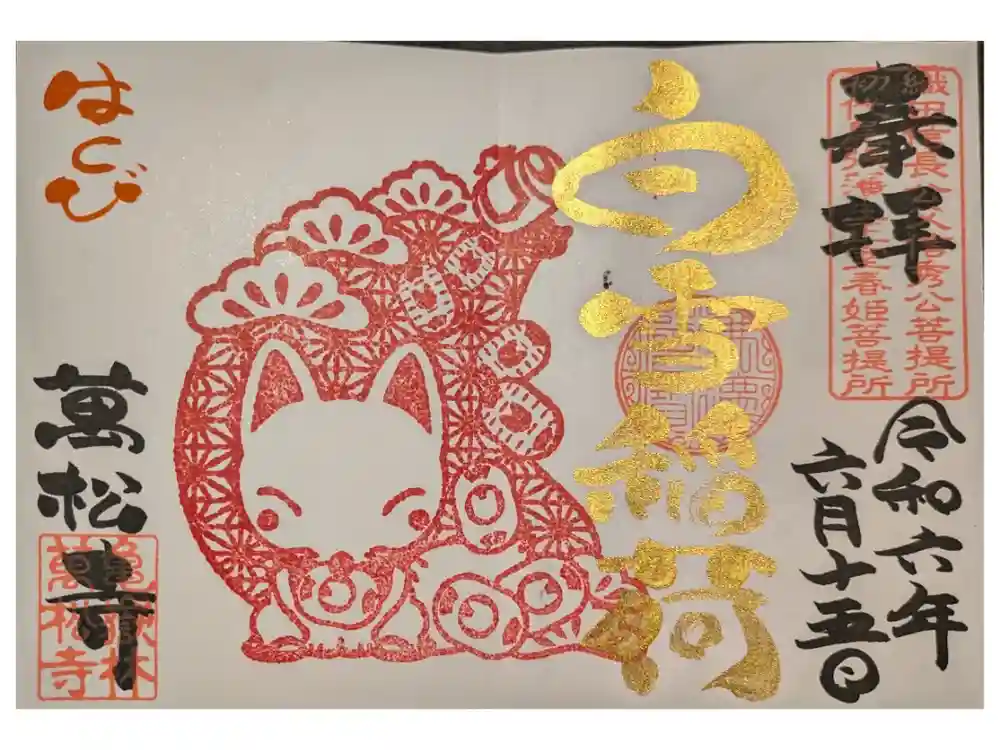 奉拝
織田信長公父信秀公菩提所
初代尾張藩主正室春姫菩提所
令和六年
六月十五日
白雪稲荷
はくび
萬松寺
亀嶽林
萬松寺